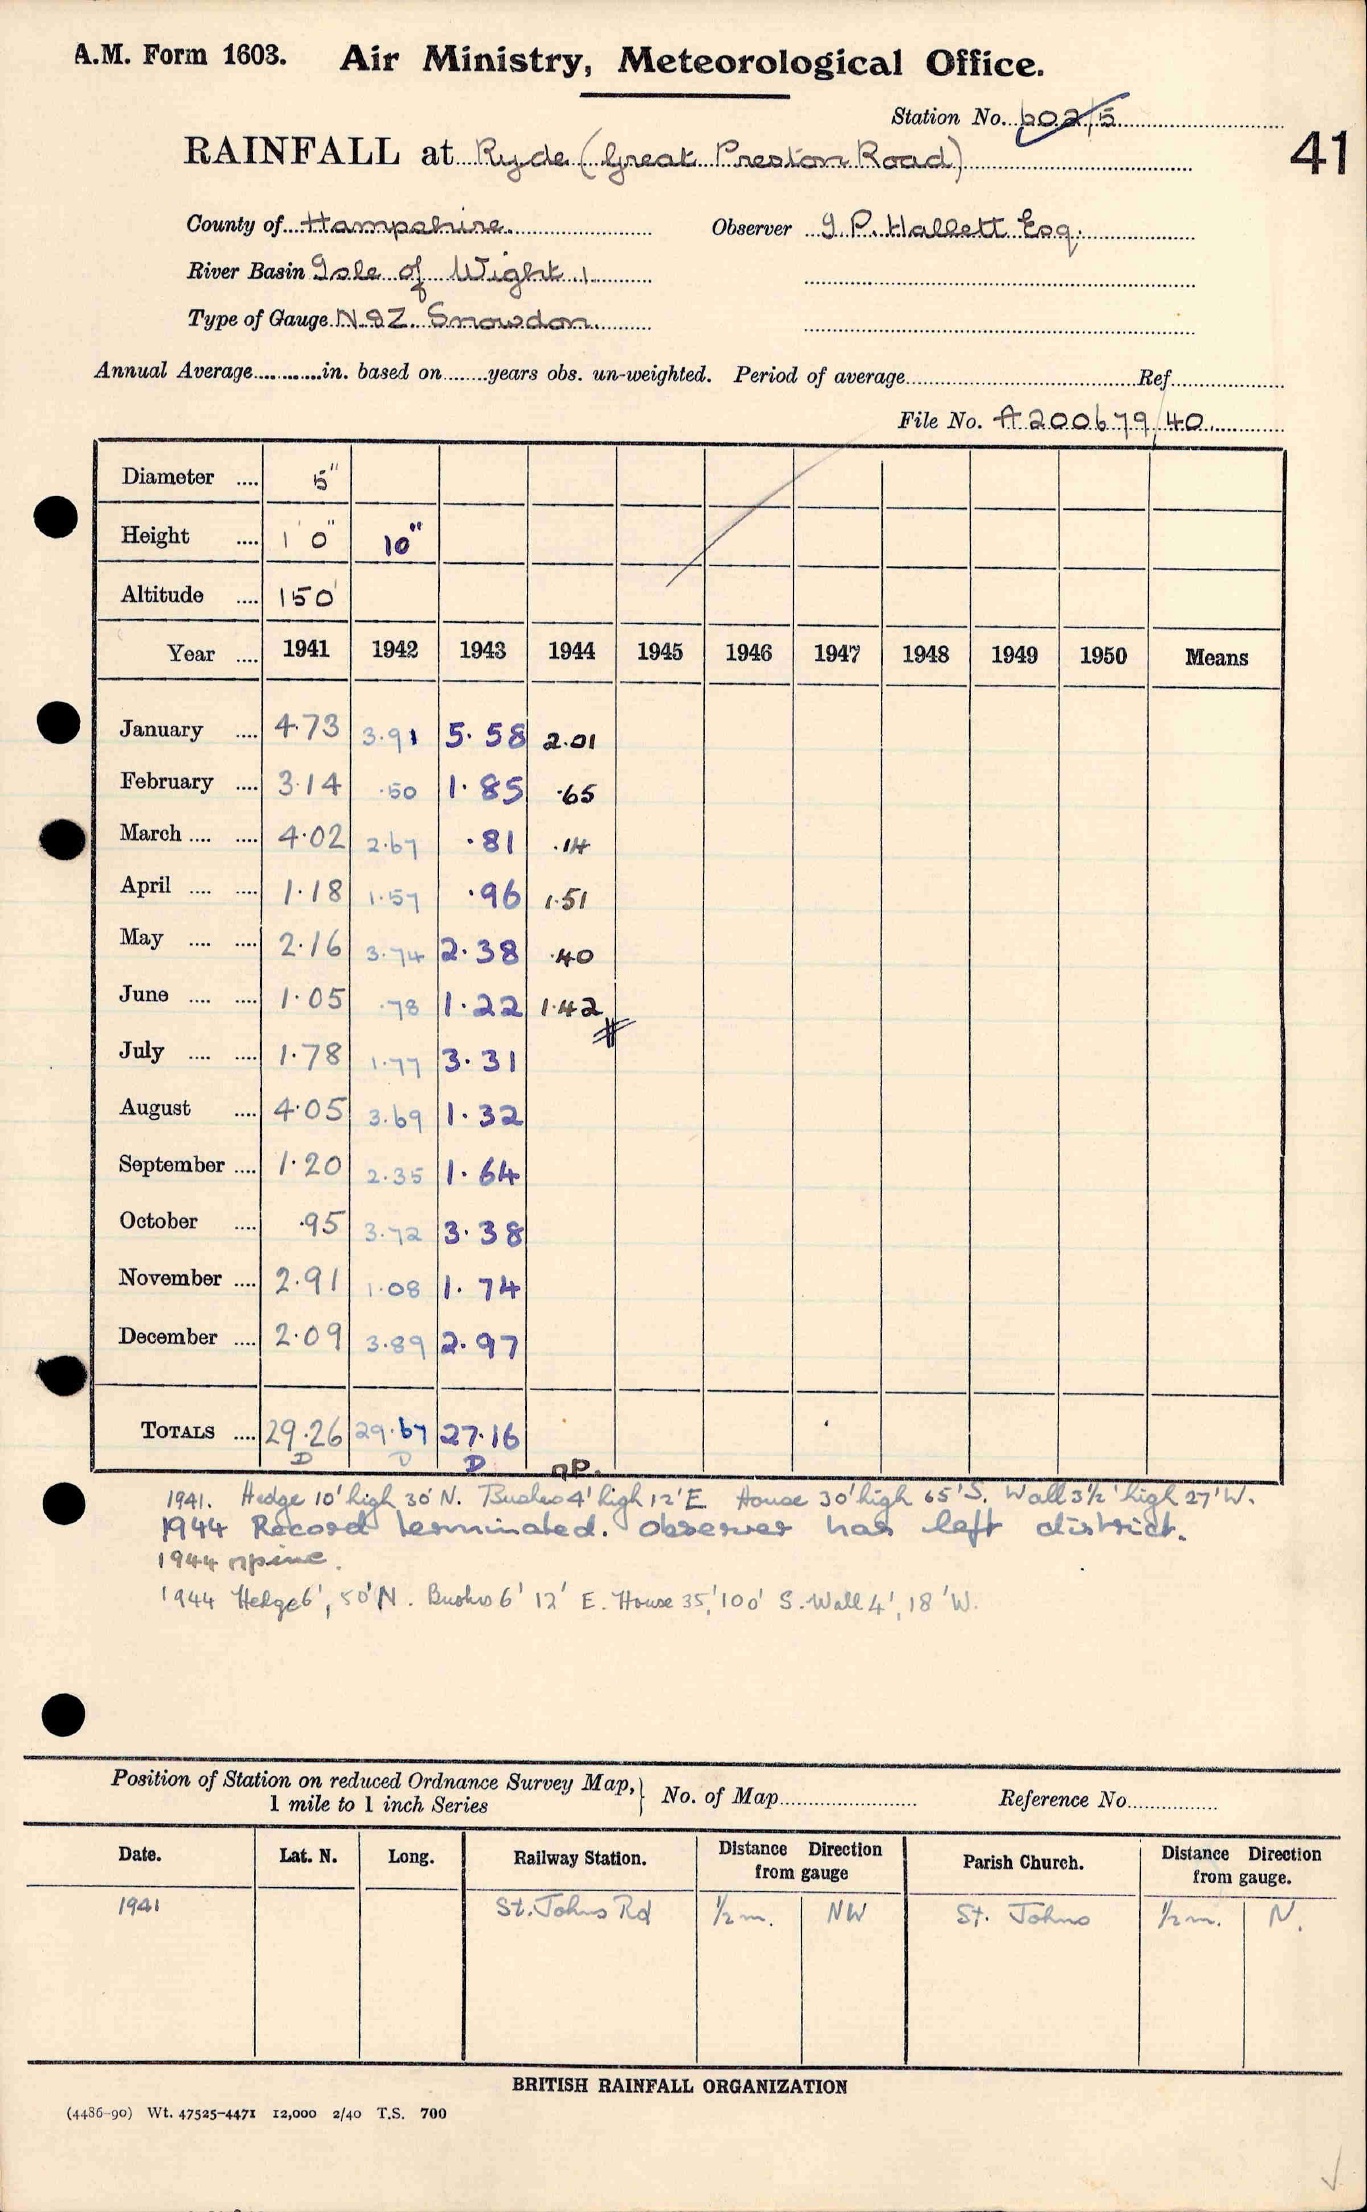 A.M. Form 1603. Air Ministry, Meteorological Office.
Station No. 602/5
41
RAINFALL at Ryde (Great Preston Road)
County of Hampshire. Observer G.P. Hallett Esq.
River Basin Isle of Wight 1
Type of Gauge N&Z Snowdon
Annual Average............in. based on........years obs. un-weighted. Period of average........Ref........
File No. A200679/40
Diameter .... 5"
Height .... 1' 0" 10"
Altitude .... 150'
Year .... 1941 1942 1943 1944 1945 1946 1947 1948 1949 1950 Means
January .... 4.73 3.91 5.58 2.01
February .... 3.14 .50 1.85 .65
March .... .... 4.02 2.67 .81 .14
April .... .... 1.18 1.57 .96 1.51
May .... .... 2.16 3.74 2.38 .40
June .... .... 1.05 .78 1.22 1.42
July .... .... 1.78 1.77 3.31
August .... 4.05 3.69 1.32
September .... 1.20 2.35 1.64
October .... .95 3.72 3.38
November .... 2.91 1.08 1.74
December .... 2.09 3.89 2.97
TOTALS .... 29.26 29.67 27.16
D D D np.
1941. Hedge 10' high 30' N. Bushes 4' high 12' E House 30' high 65' S. Wall 3½' high 27' W.
1944 Record terminated. Observer has left district.
1944
1944 Hedge 6', 50' N. Bushes 6' 12' E. House 35', 100' S. Wall 4', 18' W.
Position of Station on reduced Ordnance Survey Map, } No. of Map........ Reference No........
1 mile to 1 inch Series
Date. Lat. N. Long. Railway Station. Distance Direction from gauge Parish Church. Distance Direction from gauge.
1941 St. Johns Rd ½ m. NW St. Johns ½ m. N.
BRITISH RAINFALL ORGANIZATION
(4486-90) Wt. 47525-4471 12,000 2/40 T.S. 700